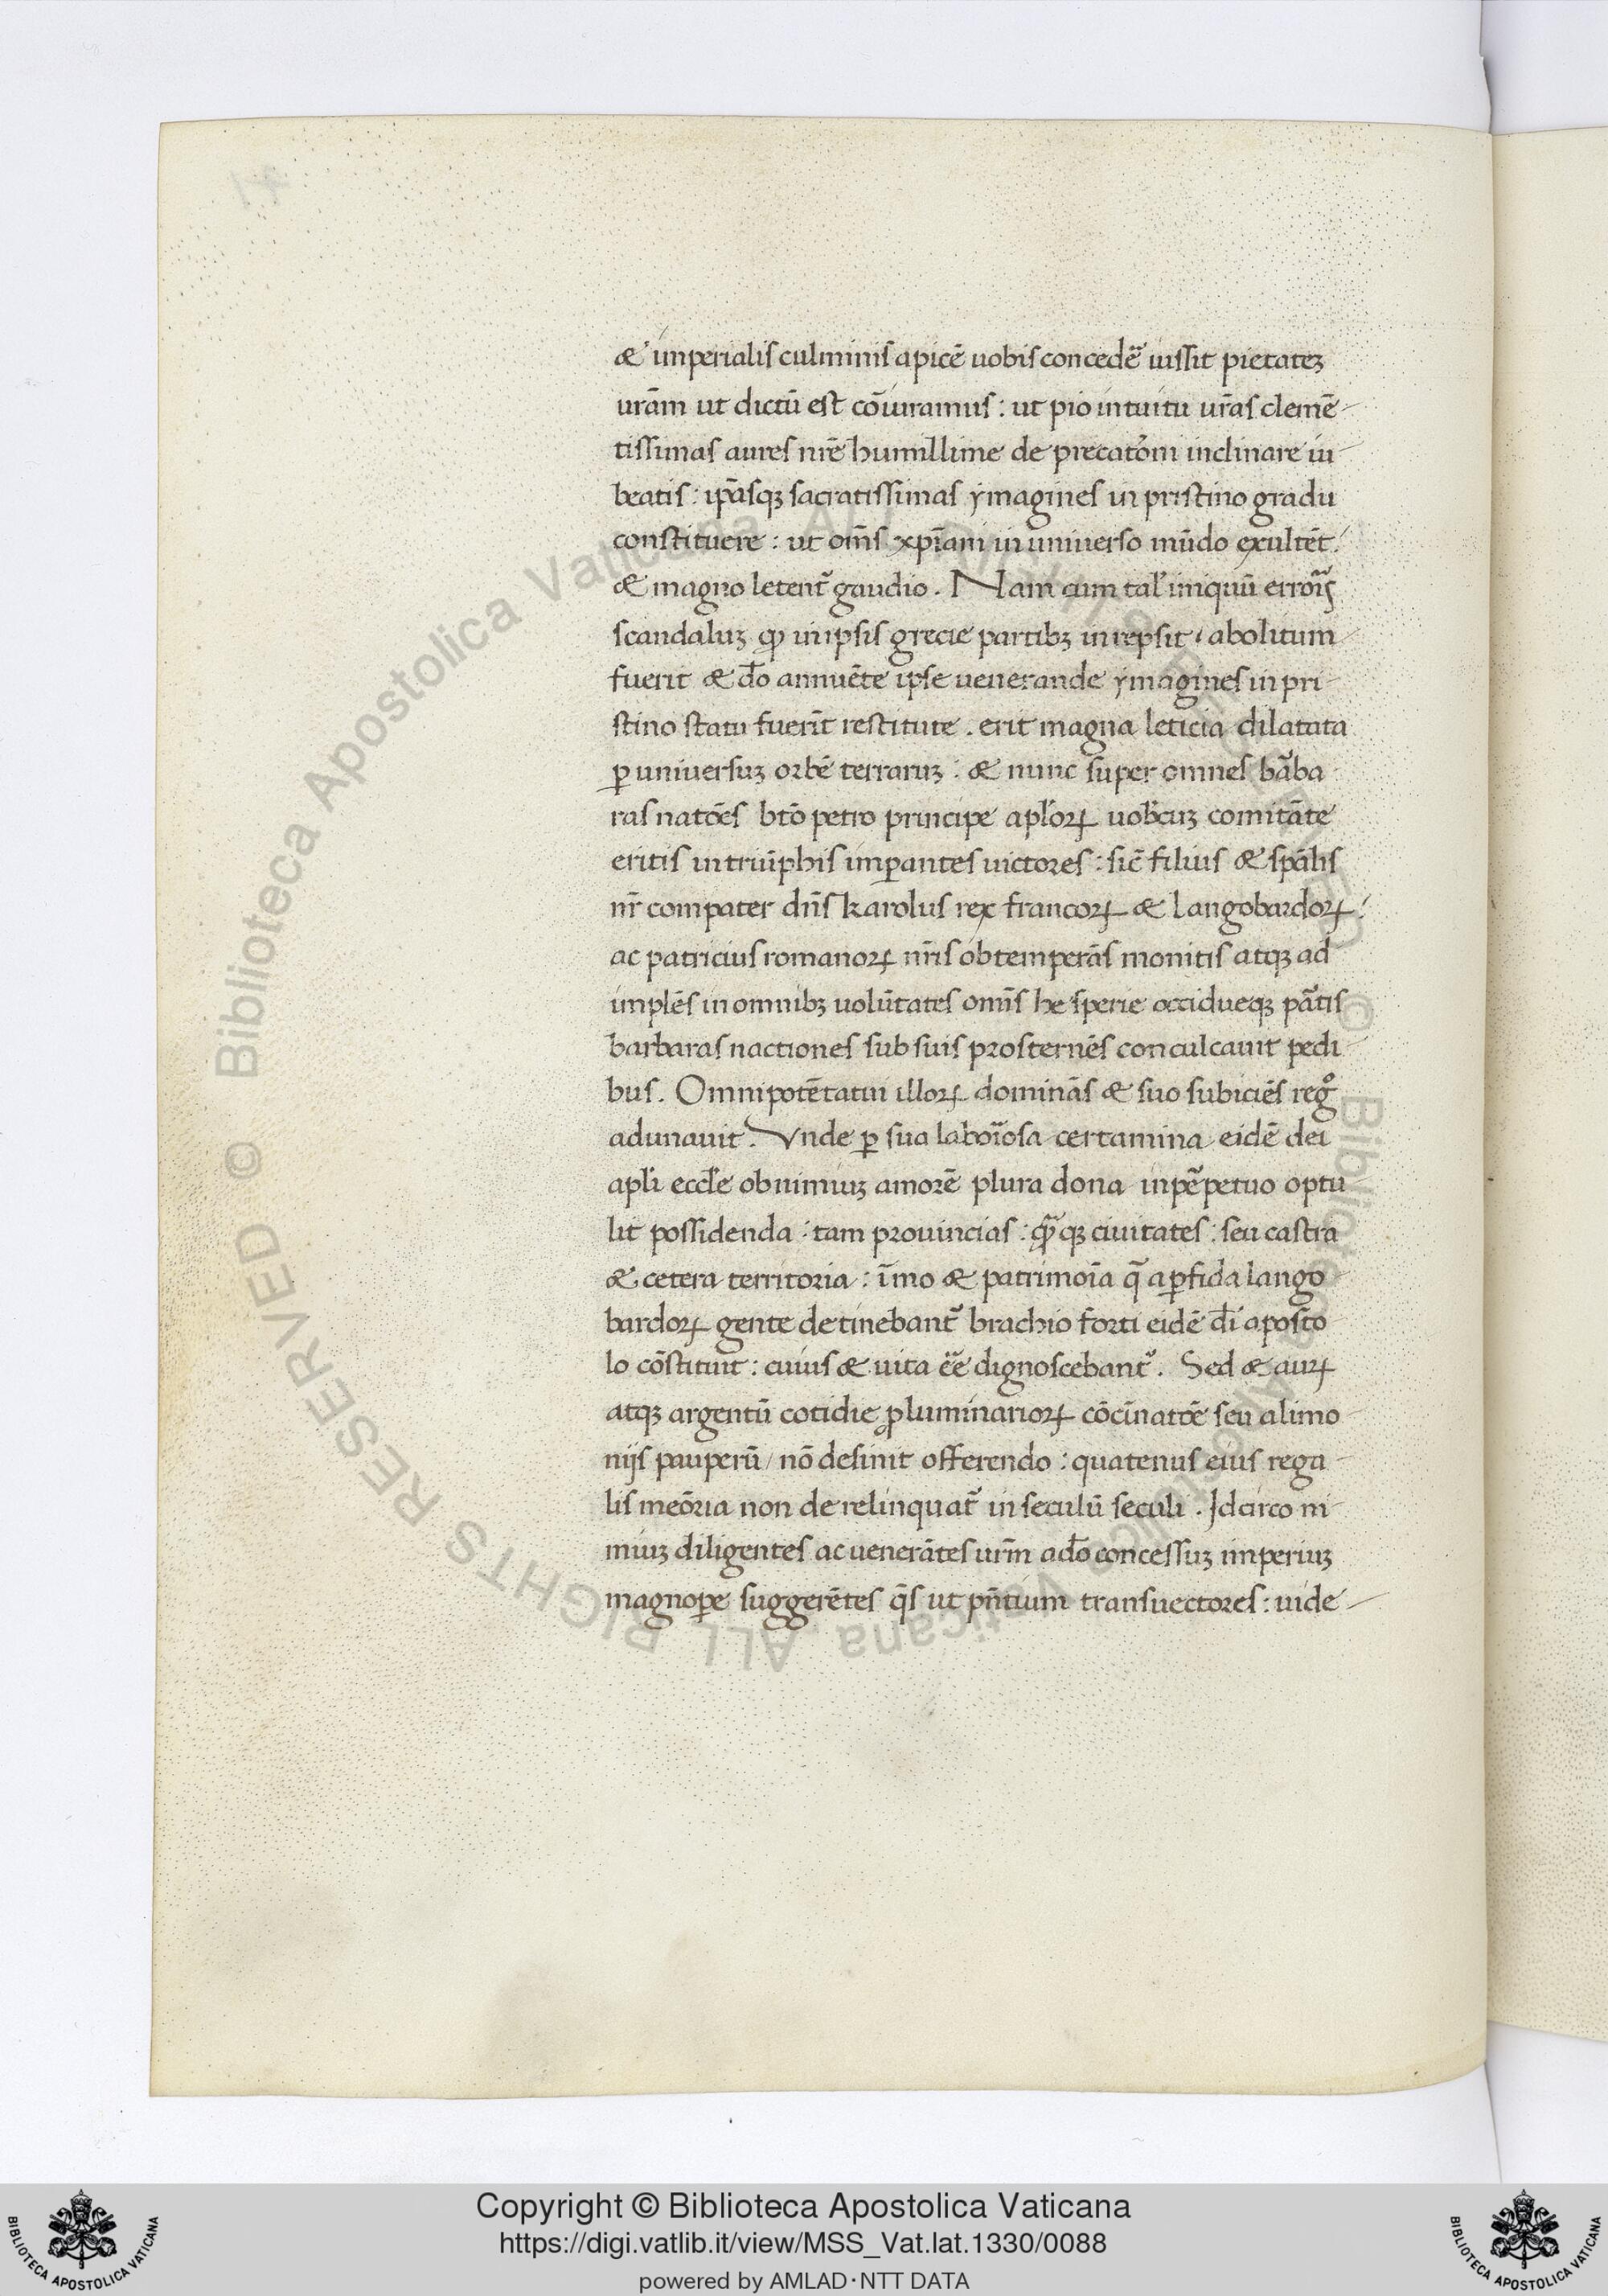 & imperialis culminis apicē uobis concedē iussit pietatez
urām ut dictū est cōiuramus : ut pio intuitu urās clemē-
tissimas aures nrē humillime de precatōni inclinare iu-
beatis : ipāsqz sacratissimas ymagines in pristino gradu
constituere : ut omīs xpīani in uniuerso mūdo exultēt.
& magno letent᷑ gaudio . Nam cum tal' iniquū erroris
scandaluz qꝫ in ipsis grecie partibz inrepsit / abolitum
fuerit & dō annuēte ipse uenerande ymagines in pri-
stino statu fuerīt restitute . erit magna leticia dilatata
ꝑ uniuersuz orbē terraruz : & nunc super omnes bāba-
ras natōes btō petro principe apl'oꝝ uobcuz comitāte
eritis in triūphis imꝑantes uictores : sic̄ filius & spālis
nr̄ compater dn̄s karolus rex francoꝝ & langobardoꝝ :
ac patricius romanoꝝ nrīs obtemperās monitis atqz ad
implēs in omnibz uolūtates omīs hesperie occidueqz pātis
barbaras nactiones sub suis prosternēs conculcauit pedi-
bus . Omnipotētatui illoꝝ dominās & suo subiciēs regͦ
adunauit . Vnde ꝑ sua laboīosa certamina eidē dei
apl'i eccl'e ob nimiuz amorē plura dona inpēpetuo optu-
lit possidenda : tam prouincias : qꝫqz ciuitates : seu castra
& cetera territoria : īmo & patrimoīa q̄ a ꝑfida lango-
bardoꝝ gente detinebant᷑ brachio forti eidē dī aposto-
lo cōstituit : cuius & uita eē dignoscebant᷑ . Sed & auꝝ
atqz argentū cotidie ꝓ luminarioꝝ cōcīnatōē seu alimo-
nijs pauperū / nō desinit offerendo : quatenus eius rega-
lis meōria non derelinquat᷑ in seculū seculi . Idcirco ni-
miuz diligentes ac uenerātes urm̄ a dō concessuz imperiuz
magnoꝑe suggerētes q̄s ut pn̄tium transuectores : uide-
Copyright © Biblioteca Apostolica Vaticana
https://digi.vatlib.it/view/MSS_Vat.lat.1330/0088
powered by AMLAD·NTT DATA